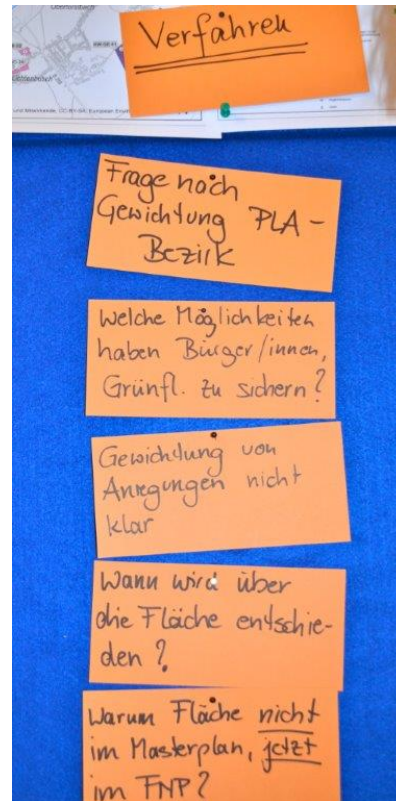 Verfahren
Frage nach
Gewichtung PLA -
Bezirk
Welche Möglichkeiten
haben Bürger/innen,
Grünfl. zu sichern?
Gewichtung von
Anregungen nicht
klar
Wann wird über
die Fläche entschie-
den?
Warum Fläche nicht
im Masterplan, jetzt
im FNP?